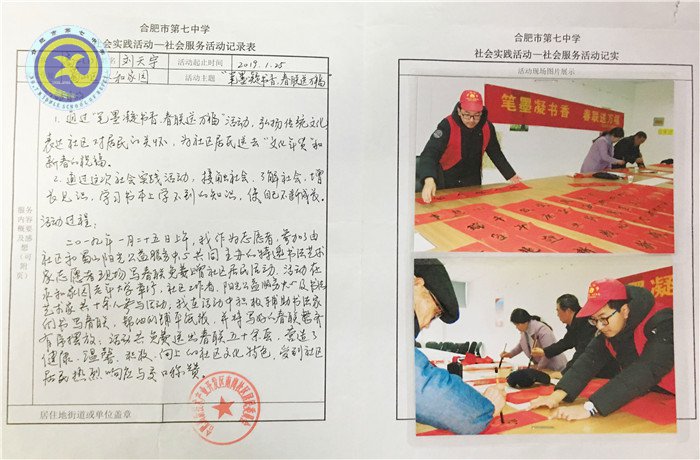 合肥市第七中学
社会实践活动—社会服务活动记录表
名 刘天宇 活动起止时间 2019.1.25
和家园 活动主题 “笔墨凝书香,春联送万福”
1. 通过“笔墨凝书香,春联送万福”活动,弘扬传统文化
表达社区对居民的关怀,为社区居民送去“文化年货”和
新春的祝福。
2. 通过这次社会实践活动,接触社会、了解社会、增
长见识,学习书本上学不到的知识,使自己不断成长。
活动过程:
二〇一九年一月二十五日上午,我作为志愿者,参加了由
社区和蜀山阳光公益服务中心共同主办的特邀书法艺术
家志愿者现场写春联免费赠社区居民活动。活动在
和家园老年大学举行,社区工作者,阳光公益服务中心及书法
艺术家共十余人参与活动,我在活动中积极辅助书法家
们书写春联,帮他们铺平纸张,并将写好的春联整齐
有序摆放,活动共免费送出春联五十余套,营造了
健康、温馨、积极、向上的社区文化特色,受到社区
居民热烈响应与交口称赞。
服务内容概要及感想(可附页)
居住地街道或单位盖章
合肥市第七中学
社会实践活动—社会服务活动记实
活动现场图片展示
笔墨凝书香 春联送万福
墨凝